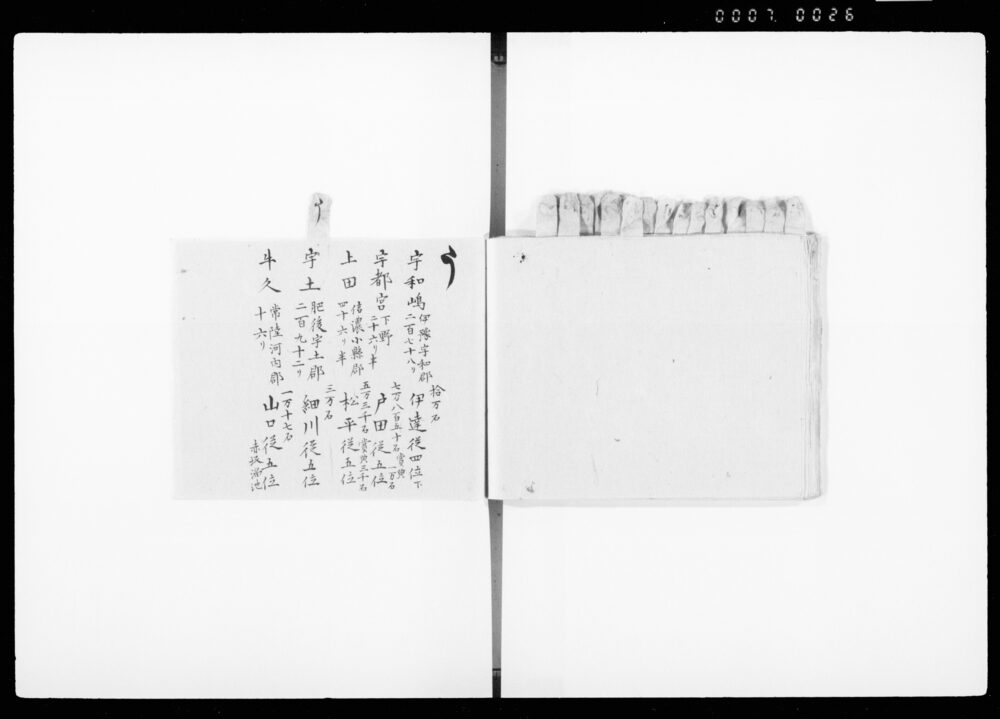 0007 0026
う
う
宇和嶋 伊豫宇和郡 二百七十八り
拾万石
伊達従四位下
宇都宮 下野 二十六り半
七万八百五十石 賞典一万石
戸田従五位
上田 信濃小縣郡 四十六り半
五万三千石 賞典三千石
松平従五位
宇土 肥後宇土郡 二百九十二り
三万石
細川従五位
牛久 常陸河内郡 十六り
一万十七石
山口従五位
赤坂溜池